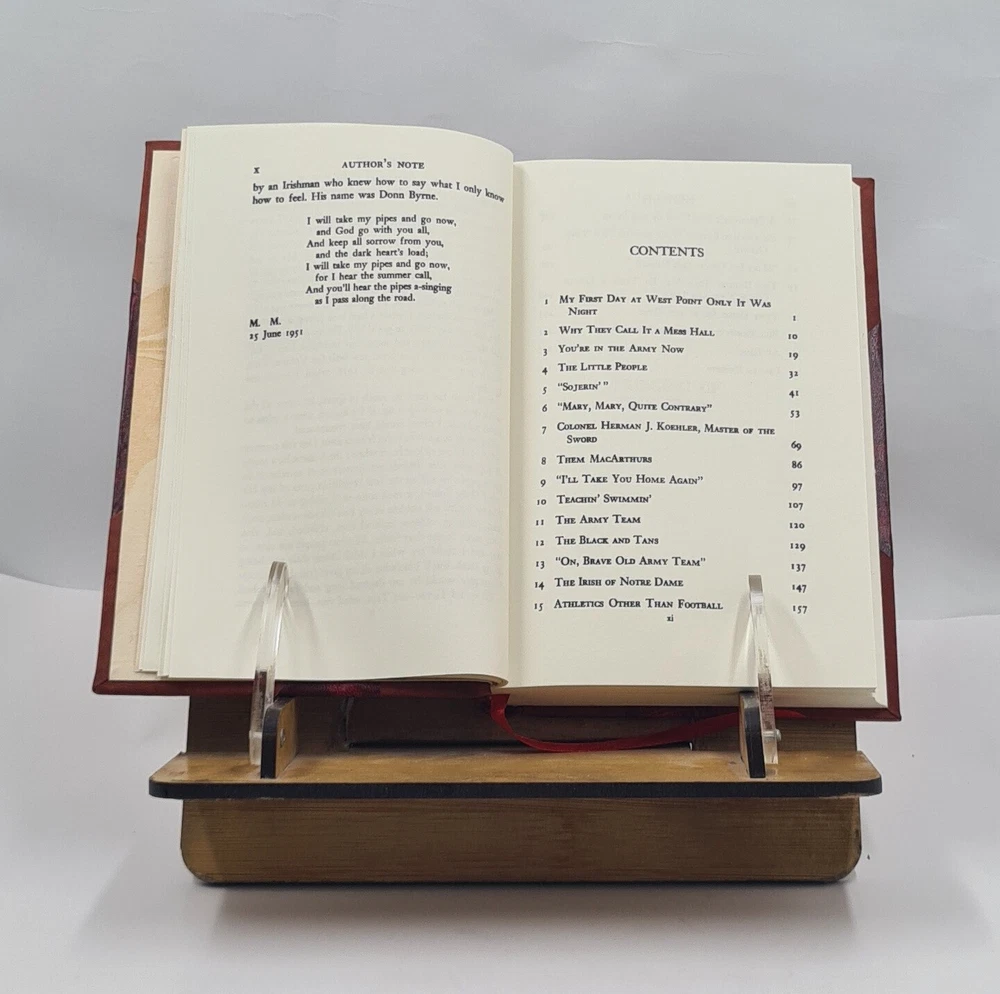 x AUTHOR'S NOTE
by an Irishman who knew how to say what I only know
how to feel. His name was Donn Byrne.
I will take my pipes and go now,
and God go with you all,
And keep all sorrow from you,
and the dark heart's load;
I will take my pipes and go now,
for I hear the summer call,
And you'll hear the pipes a-singing
as I pass along the road.
M. M.
25 June 1951
CONTENTS
1 My First Day at West Point Only It Was
Night 1
2 Why They Call It a Mess Hall 10
3 You're in the Army Now 19
4 The Little People 32
5 "Sojerin'" 41
6 "Mary, Mary, Quite Contrary" 53
7 Colonel Herman J. Koehler, Master of the
Sword 69
8 Them MacArthurs 86
9 "I'll Take You Home Again" 97
10 Teachin' Swimmin' 107
11 The Army Team 120
12 The Black and Tans 129
13 "On, Brave Old Army Team" 137
14 The Irish of Notre Dame 147
15 Athletics Other Than Football 157
xi